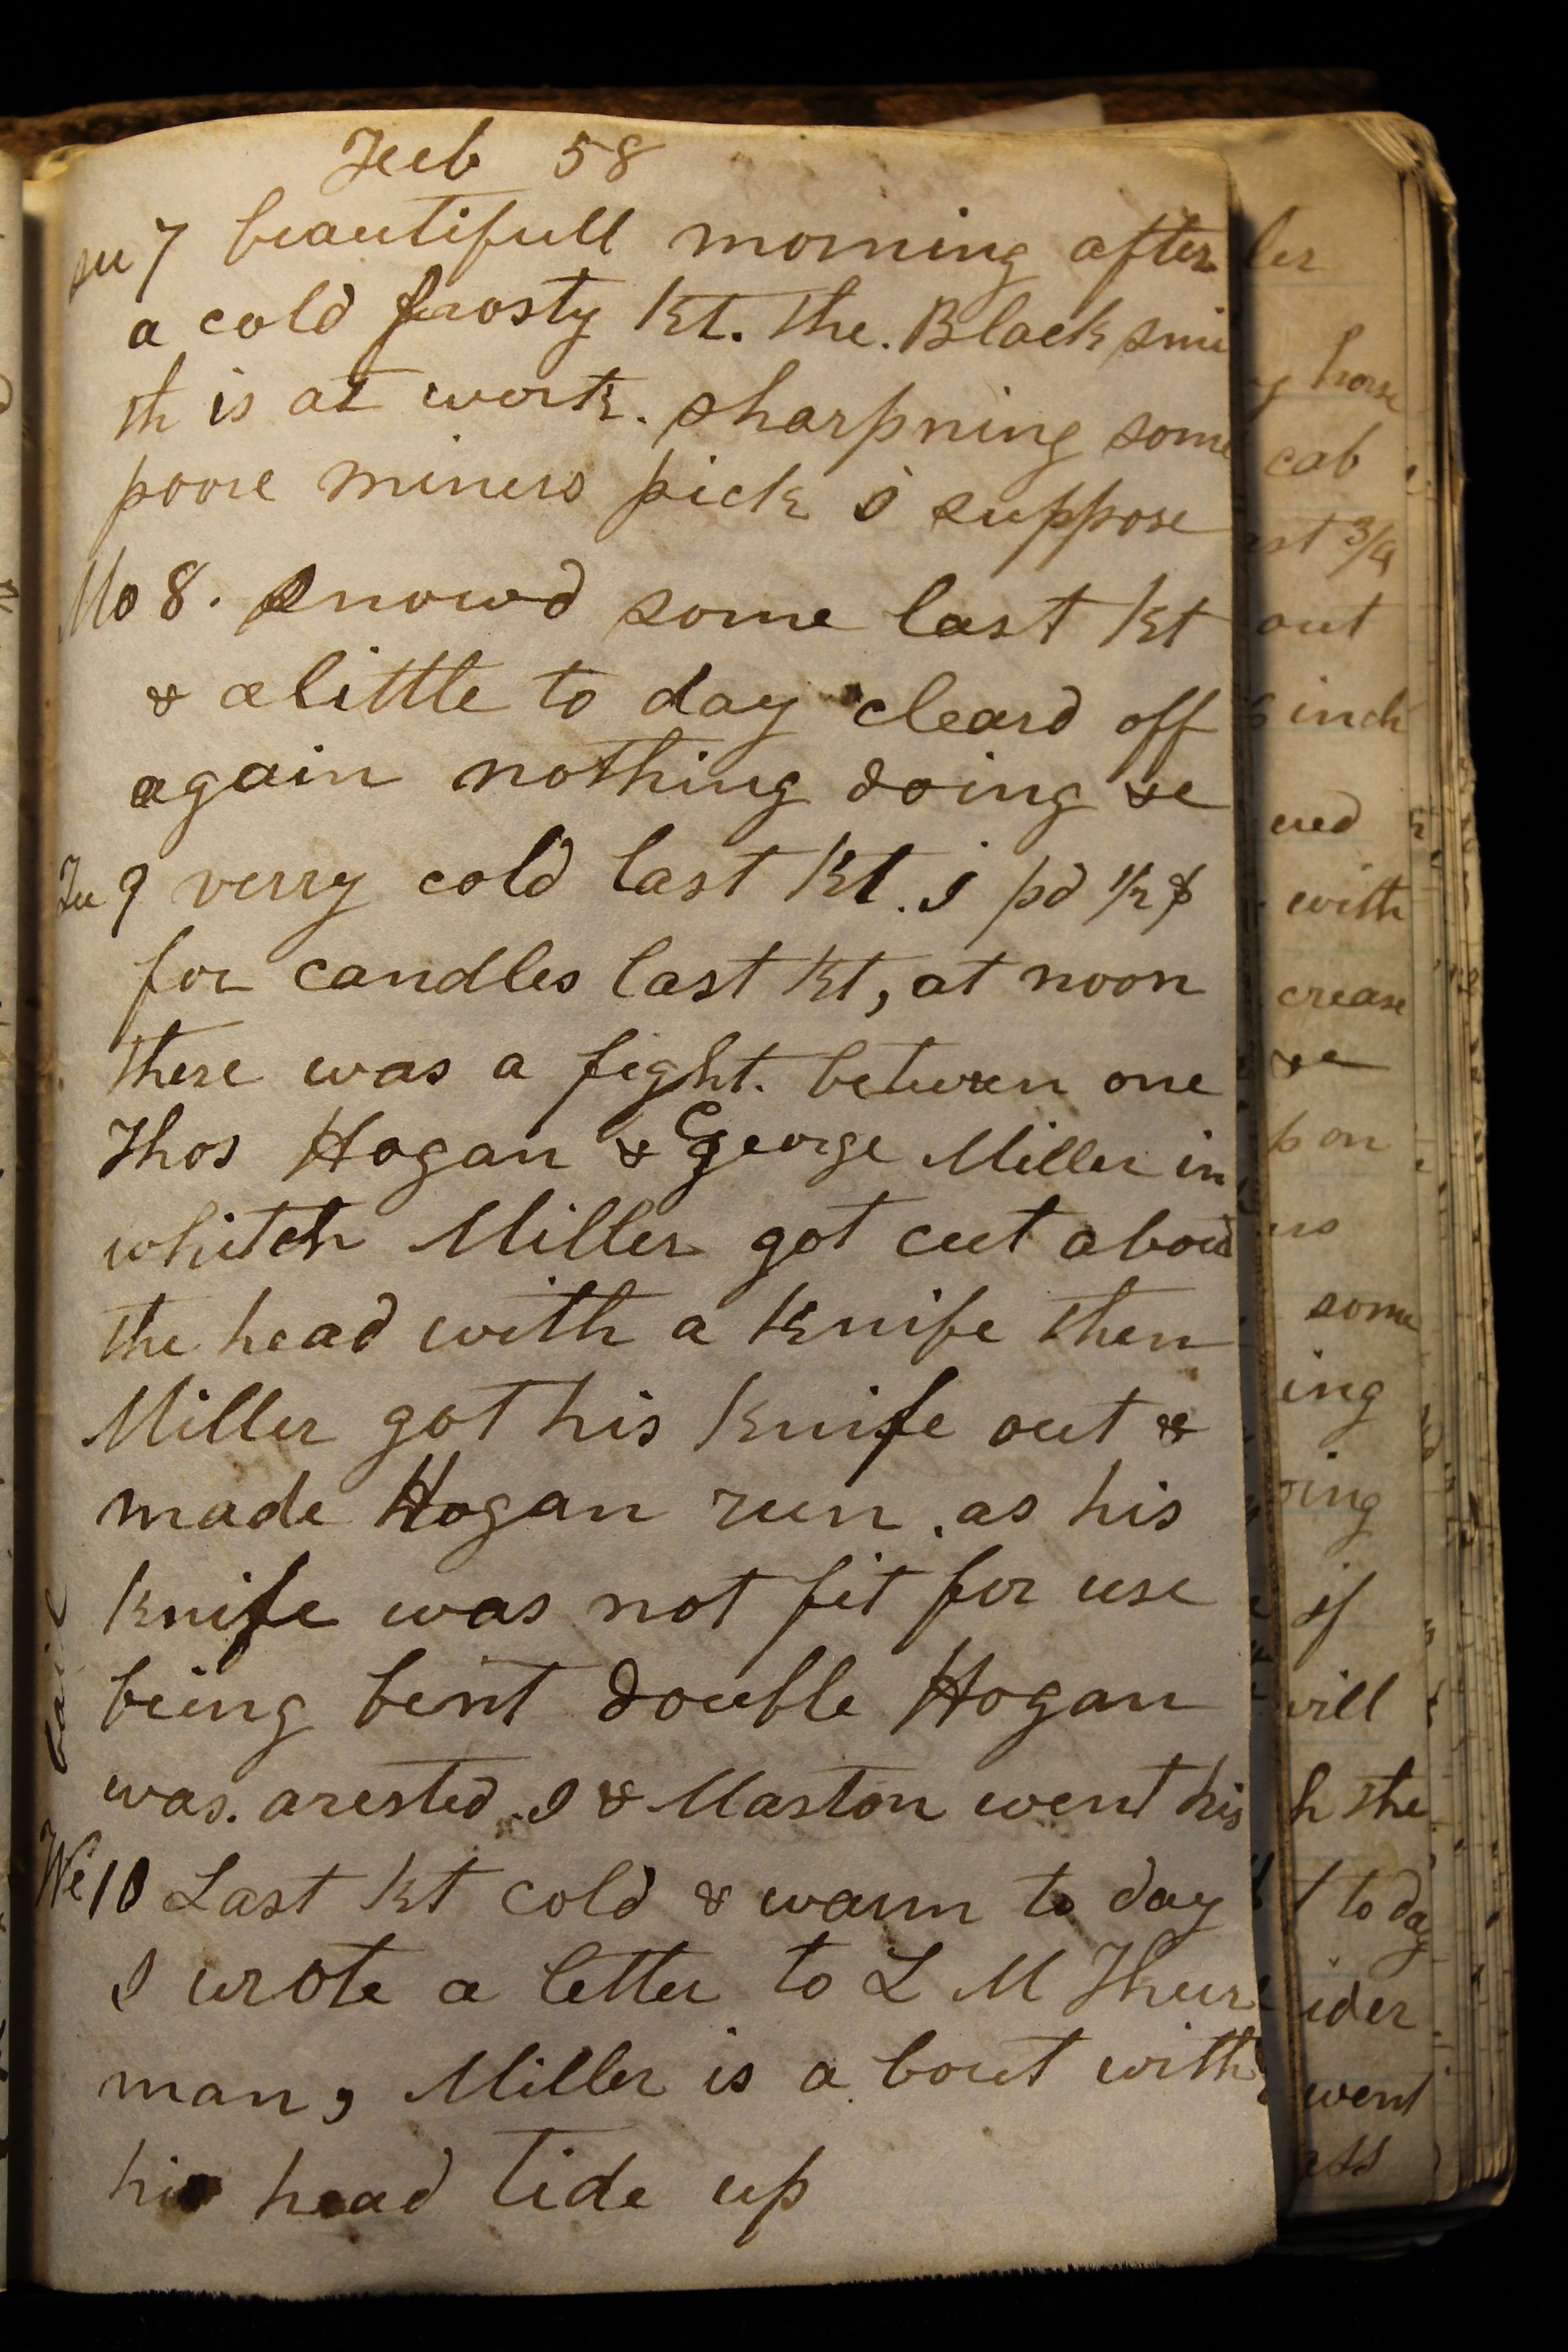 Feb 58
su 7 beautifull morning after
a cold frosty kt. the. Black smi
th is at work. sharpning some
poore miners pick i suppose
Mo 8. snowd some last kt
& alittle to day cleard off
again nothing doing &c
Tu 9 verry cold last kt. i pd 1/2 $
for candles last kt, at noon
there was a fight. between one
Thos Hogan & George Miller in
whitch Miller got cut about
the head with a knife then
Miller got his knife out &
made Hogan run. as his
knife was not fit for use
being bent double Hogan
was. arested. I & Maston went his
bail
We 10 Last kt cold & warm to day
I wrote a letter to L M Thur
man, Miller is a bout with
his head tide up
ler
horse
cab
3/4
out
inch
ued
with
crease
&c
on
some
ing
if
will
the
to day
ider
went